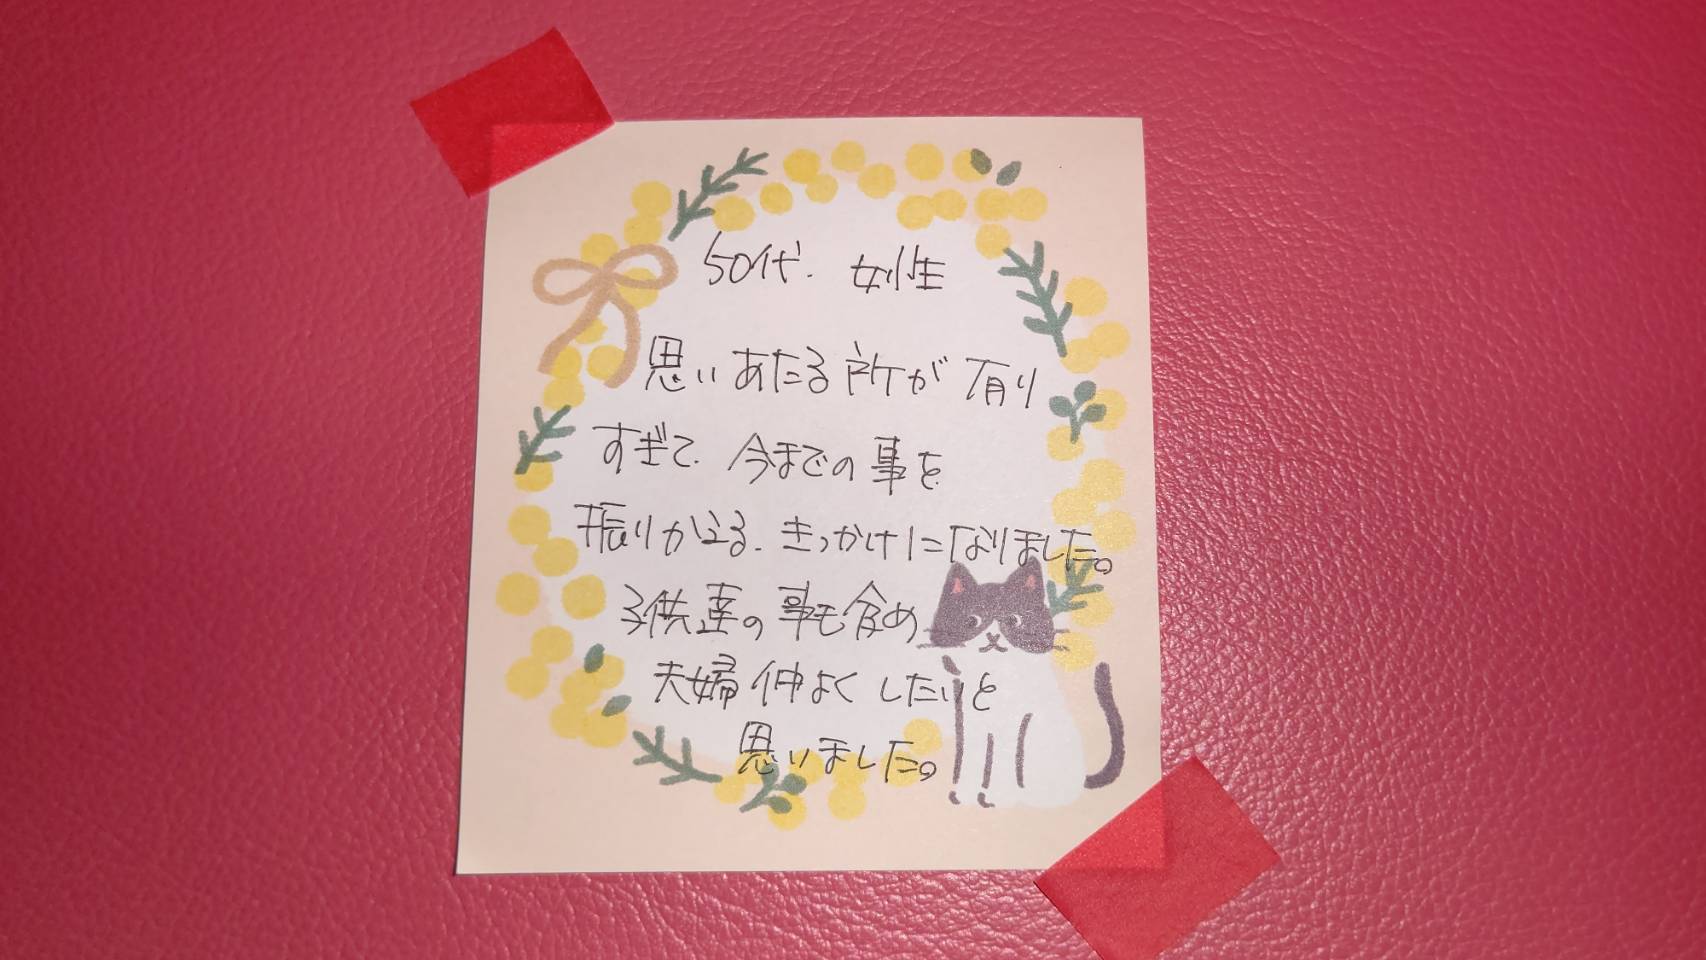 50代. 女性
思いあたる所が有り
すぎて、今までの事を
振りかえる、きっかけになりました。
子供達の事も含め
夫婦仲よくしたいと
思いました。